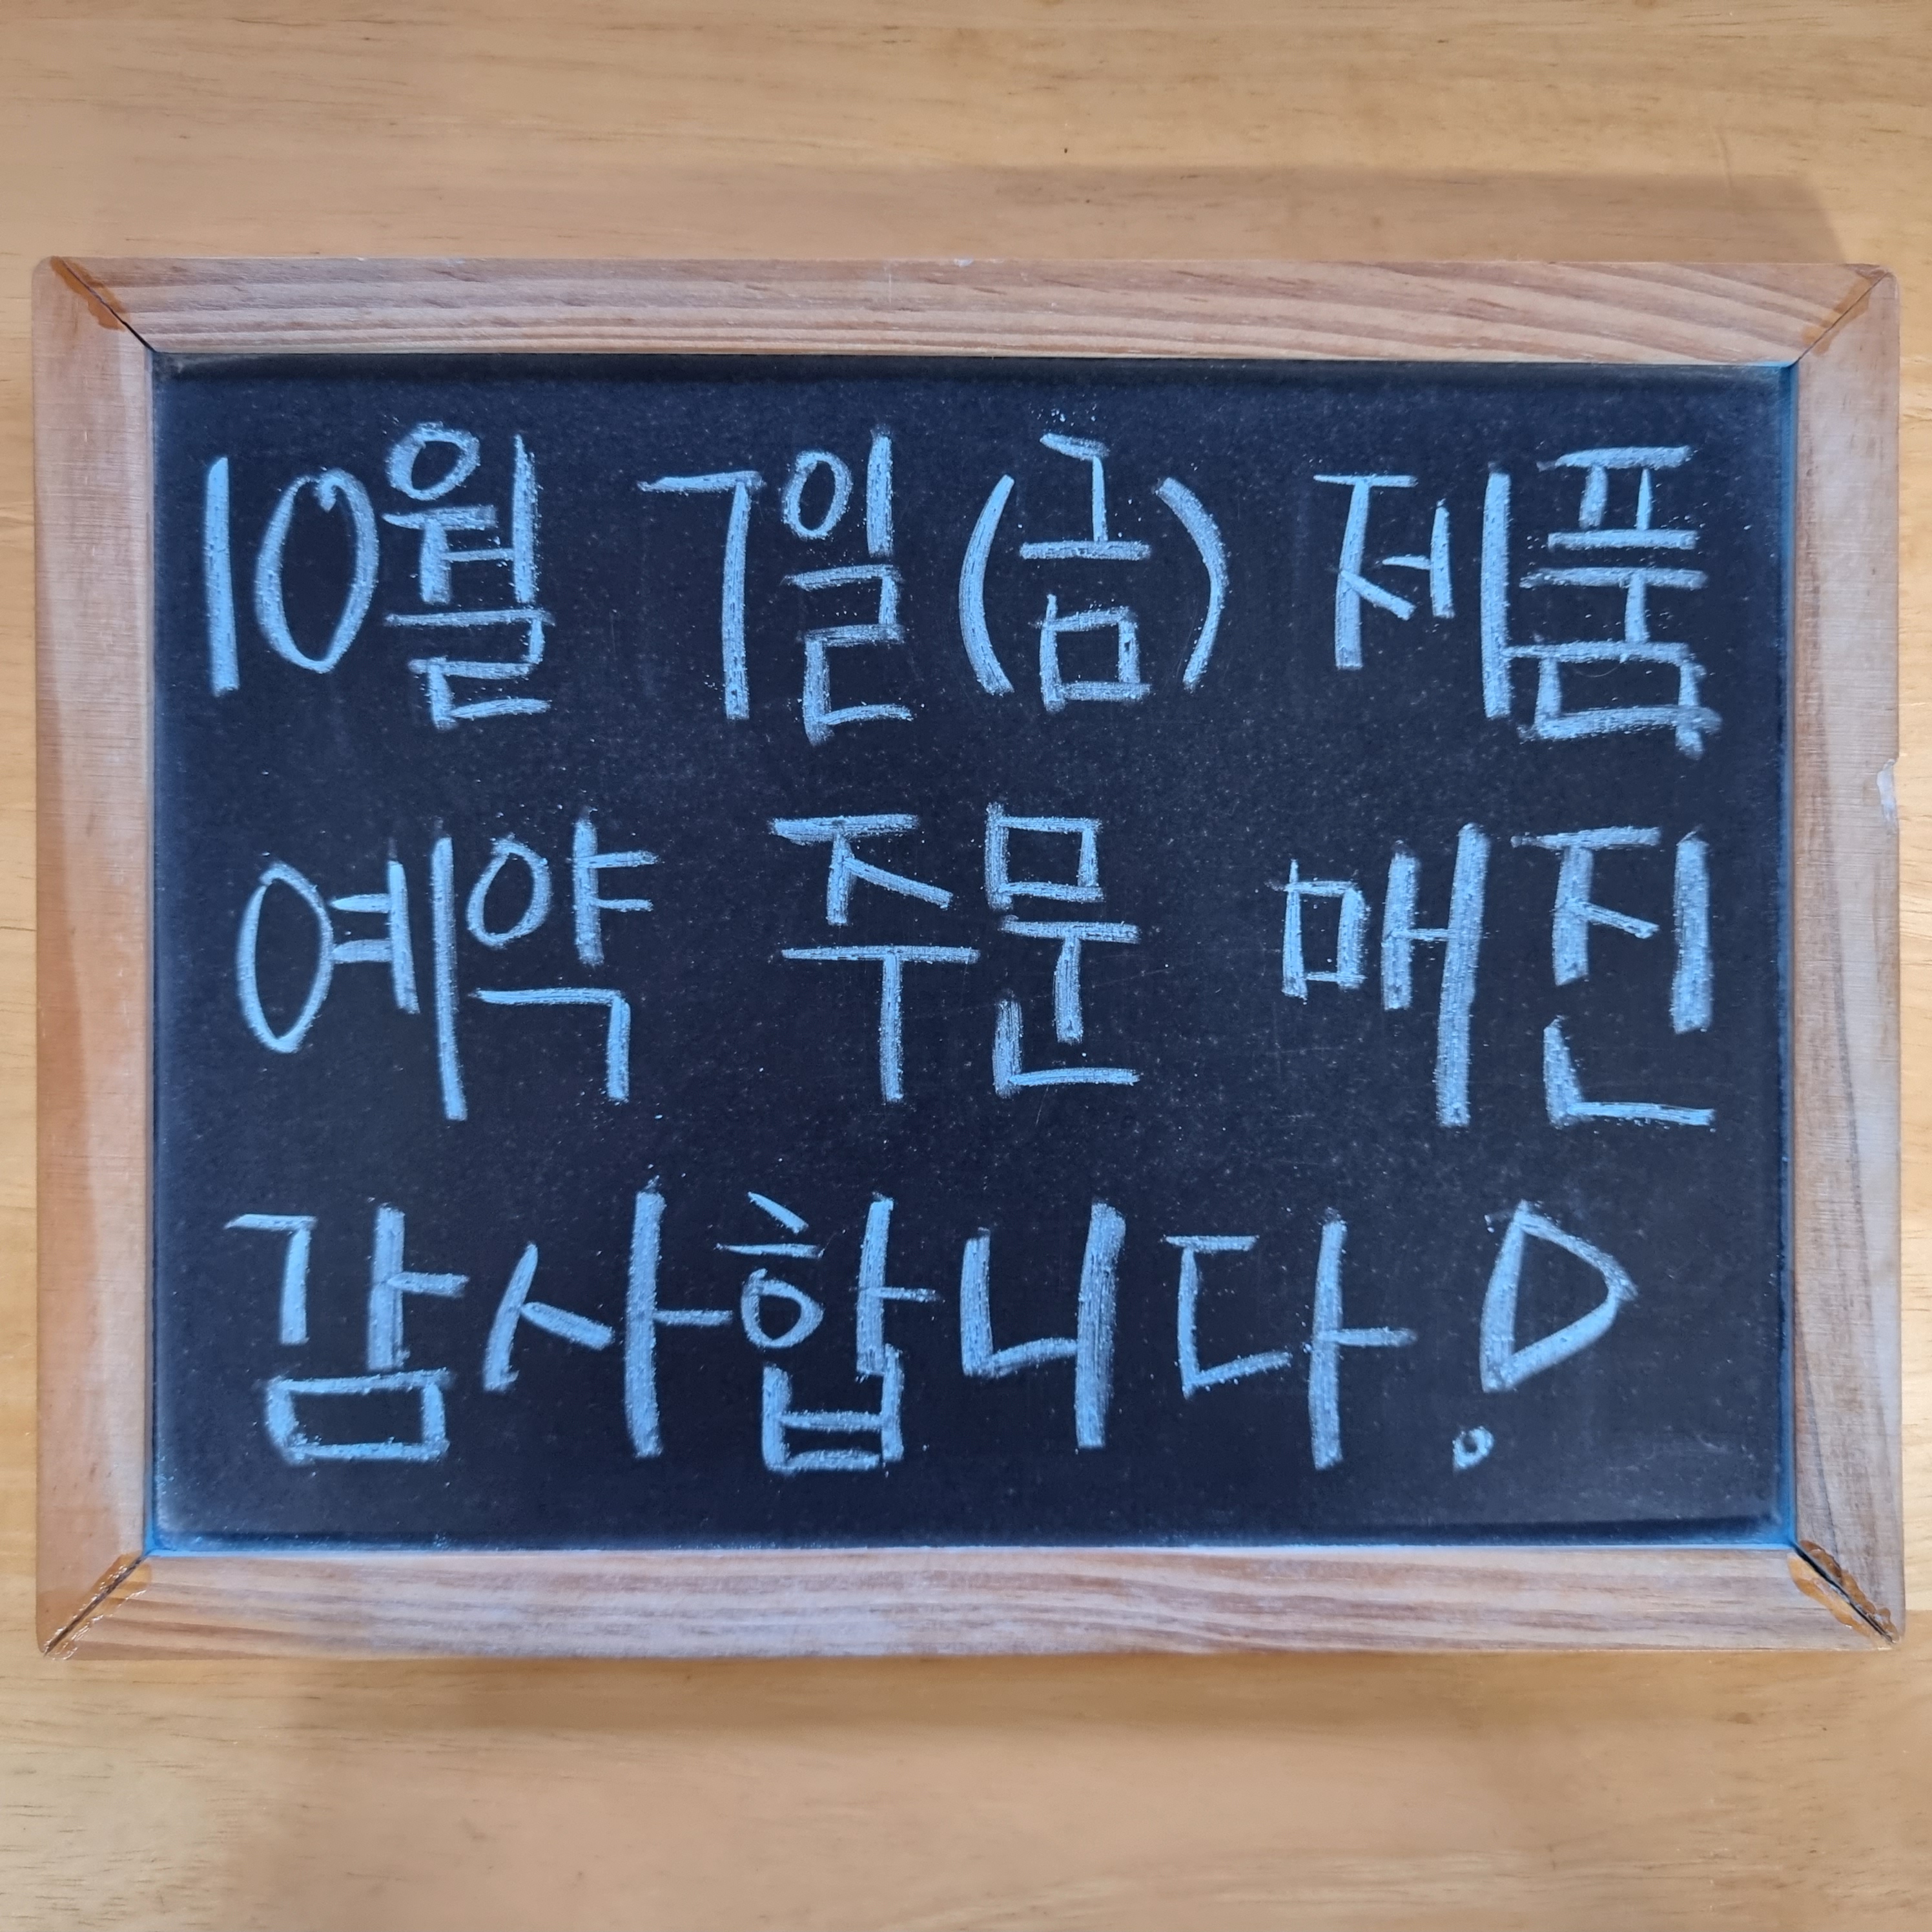 10월 7일(금) 제품
예약 주문 매진
감사합니다!